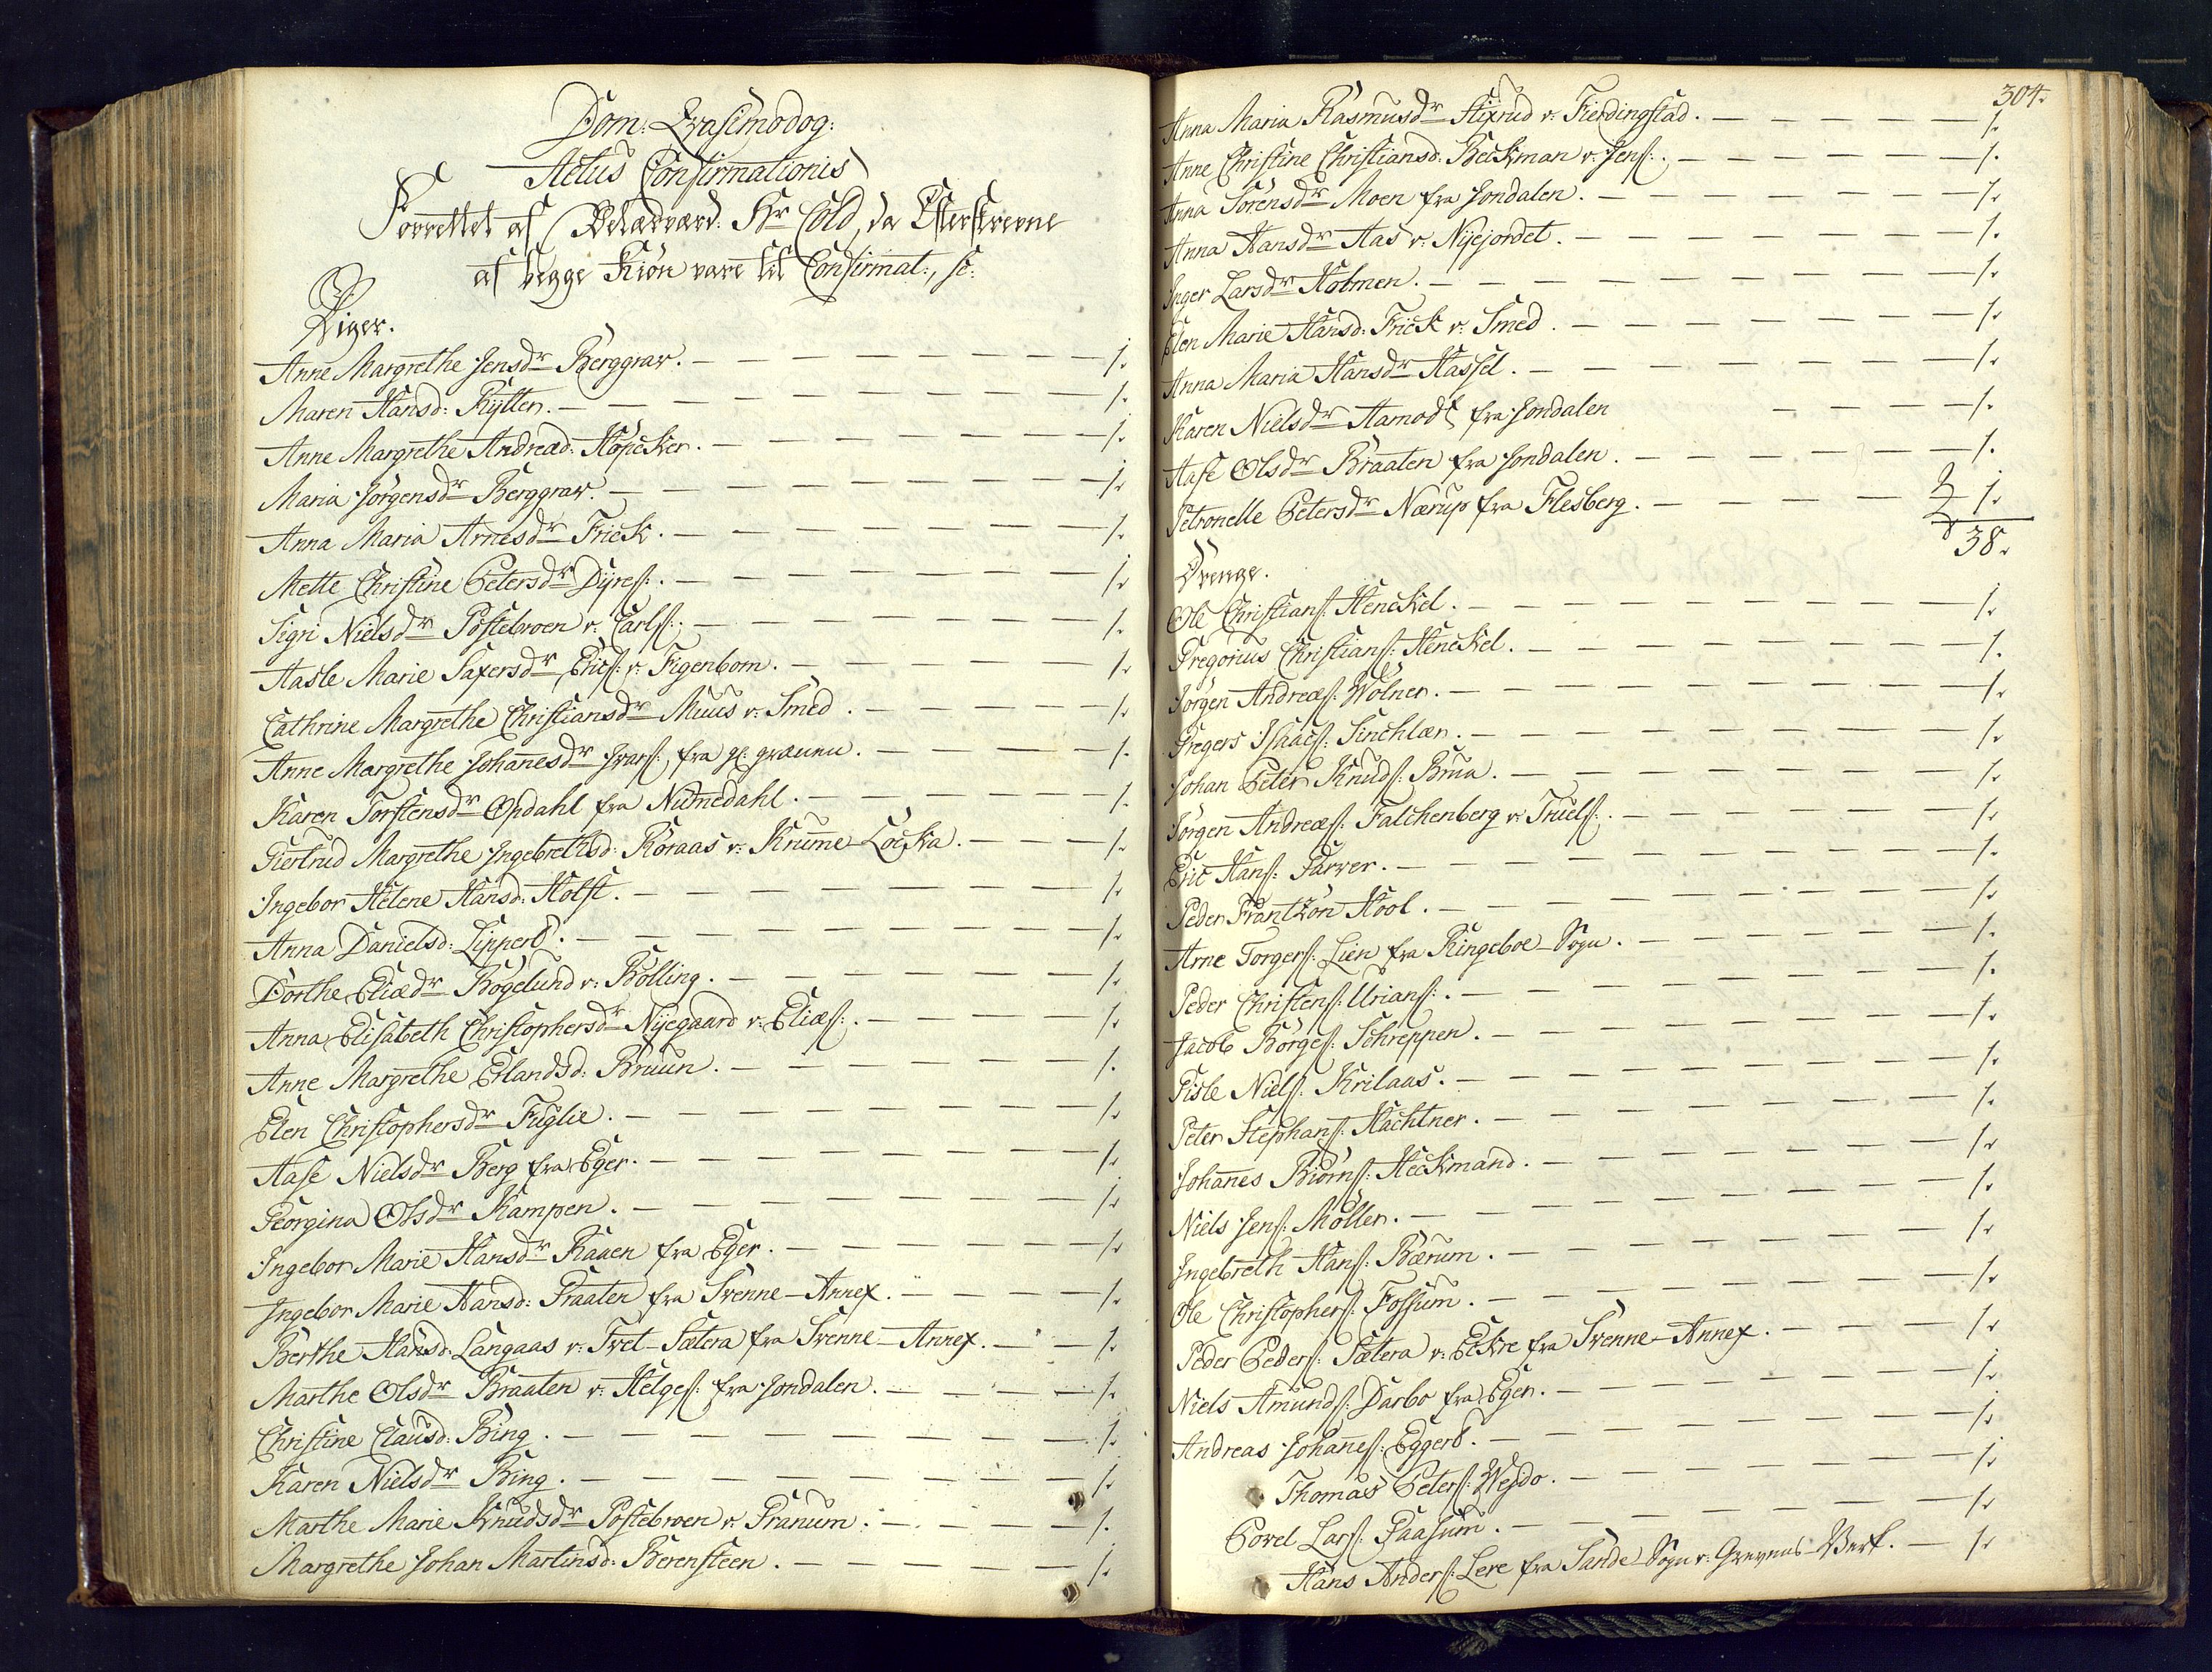 Dom: Qvasimodog:
Actus Confirmationis
Forrettet af Velærværd: Hr Cold, da Efterskrevne
af begge Kiøn vare til Confirmat:, sc:
Piger.
Anne Margrethe Jensdr Berggrav. — 1.
Maren Hansd: Rytter. — 1.
Anne Margrethe Andreæd: Höpcker. — 1.
Maria Jörgensdr Berggrav. — 1.
Anna Maria Arnesdr Frick. — 1.
Mette Christine Petersdr Dyres:. — 1.
Sigri Nielsdr Postebroen v: Carls:. — 1.
Aasle Marie Saxersdr Erics: v: Figenbom. — 1.
Cathrine Margrethe Christiansdr Muus v: Smed. — 1.
Anne Margrethe Johanesdr Ivars:, fra gl: gruven. — 1.
Karen Torstensdr Opdahl fra Numedahl. — 1.
Giertrud Margrethe Ingebrethsd: Röraas v: Krumme-Löcka. — 1.
Ingebor Helene Hansd: Holst. — 1.
Anna Danielsd: Lippert. — 1.
Dorthe Eliædr Bögelund v: Bölling. — 1.
Anna Elisabeth Christophersdr Nijegaard v: Eliæs:. — 1.
Anne Margrethe Erlandsd: Bruun. — 1.
Elen Christophersdr Fuglie. — 1.
Aase Nielsdr Berg fra Eger. — 1.
Georgina Olsdr Kampen. — 1.
Ingebor Marie Hansdr Raaen fra Eger. — 1.
Ingebor Marie Hansd: Braaten fra Svenne-Annex. — 1.
Berthe Hansd: Langaas v: Tvet-Sætera fra Svenne-Annex. — 1.
Marthe Olsdr Braaten v: Helges: fra Jondalen. — 1.
Christine Clausd: Bing. — 1.
Karen Nielsdr Bing. — 1.
Marthe Marie Knudsdr Postebroen v: Granum. — 1.
Margrethe Johan Martinsd: Berensteen. — 1.
304.
Anna Maria Rasmusdr Stixrud v: Fierdingstad. — 1.
Anne Christine Christiansd: Beckman v: Jens:. — 1.
Anna Sörensdr Moen fra Jondalen. — 1.
Anna Hansdr Aas v: Nijejordet. — 1.
Inger Larsdr Holmen. — 1.
Elen Marie Hansd: Frick v: Smed. — 1.
Anna Maria Hansdr Hassel. — 1.
Karen Nielsdr Aamodt fra Jondalen — 1.
Aase Olsdr Braaten fra Jondalen. — 1.
Petronelle Petersdr Nærup fra Flesberg. — 1.
38.
Drenge.
Ole Christians: Henckel. — 1.
Gregorius Christians: Henckel. — 1.
Jörgen Andreæs: Wölner. — 1.
Gregers Isaacs: Sinchlær. — 1.
Johan Peter Knuds: Brua. — 1.
Jörgen Andreæs: Falchenberg v: Truels:. — 1.
Eric Hans: Farver. — 1.
Peder Frantzön Hool. — 1.
Arne Torgers: Lien fra Ringeboe-Sogn. — 1.
Peder Christens: Urians:. — 1.
Jacob Börges: Schreppen. — 1.
Gisle Niels: Krilaas. — 1.
Peter Stephans: Hachtner. — 1.
Johanes Biörns: Heckmand. — 1.
Niels Jens: Möller. — 1.
Ingebreth Hans: Bærum. — 1.
Ole Christophers: Fossum. — 1.
Peder Peders: Sætera v: Eckre fra Svenne-Annex. — 1.
Niels Amunds: Darbo fra Eger. — 1.
Andreas Johanes: Eggert. — 1.
Thomas Peters: Wejdo. — 1.
Povel Lars: Paasum. — 1.
Hans Anders: Lere fra Sande-Sogn v: Grevens-Verk. — 1.